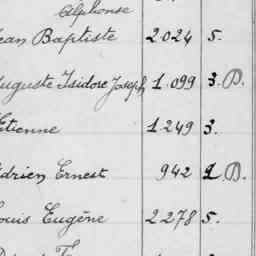 Alphonse
ean Baptiste 2.024 5.
uguste Isidore Joseph 1.099 3.D.
Etienne 1.249 3.
drien Ernest 942 2.D.
ouis Eugène 2.278 5.